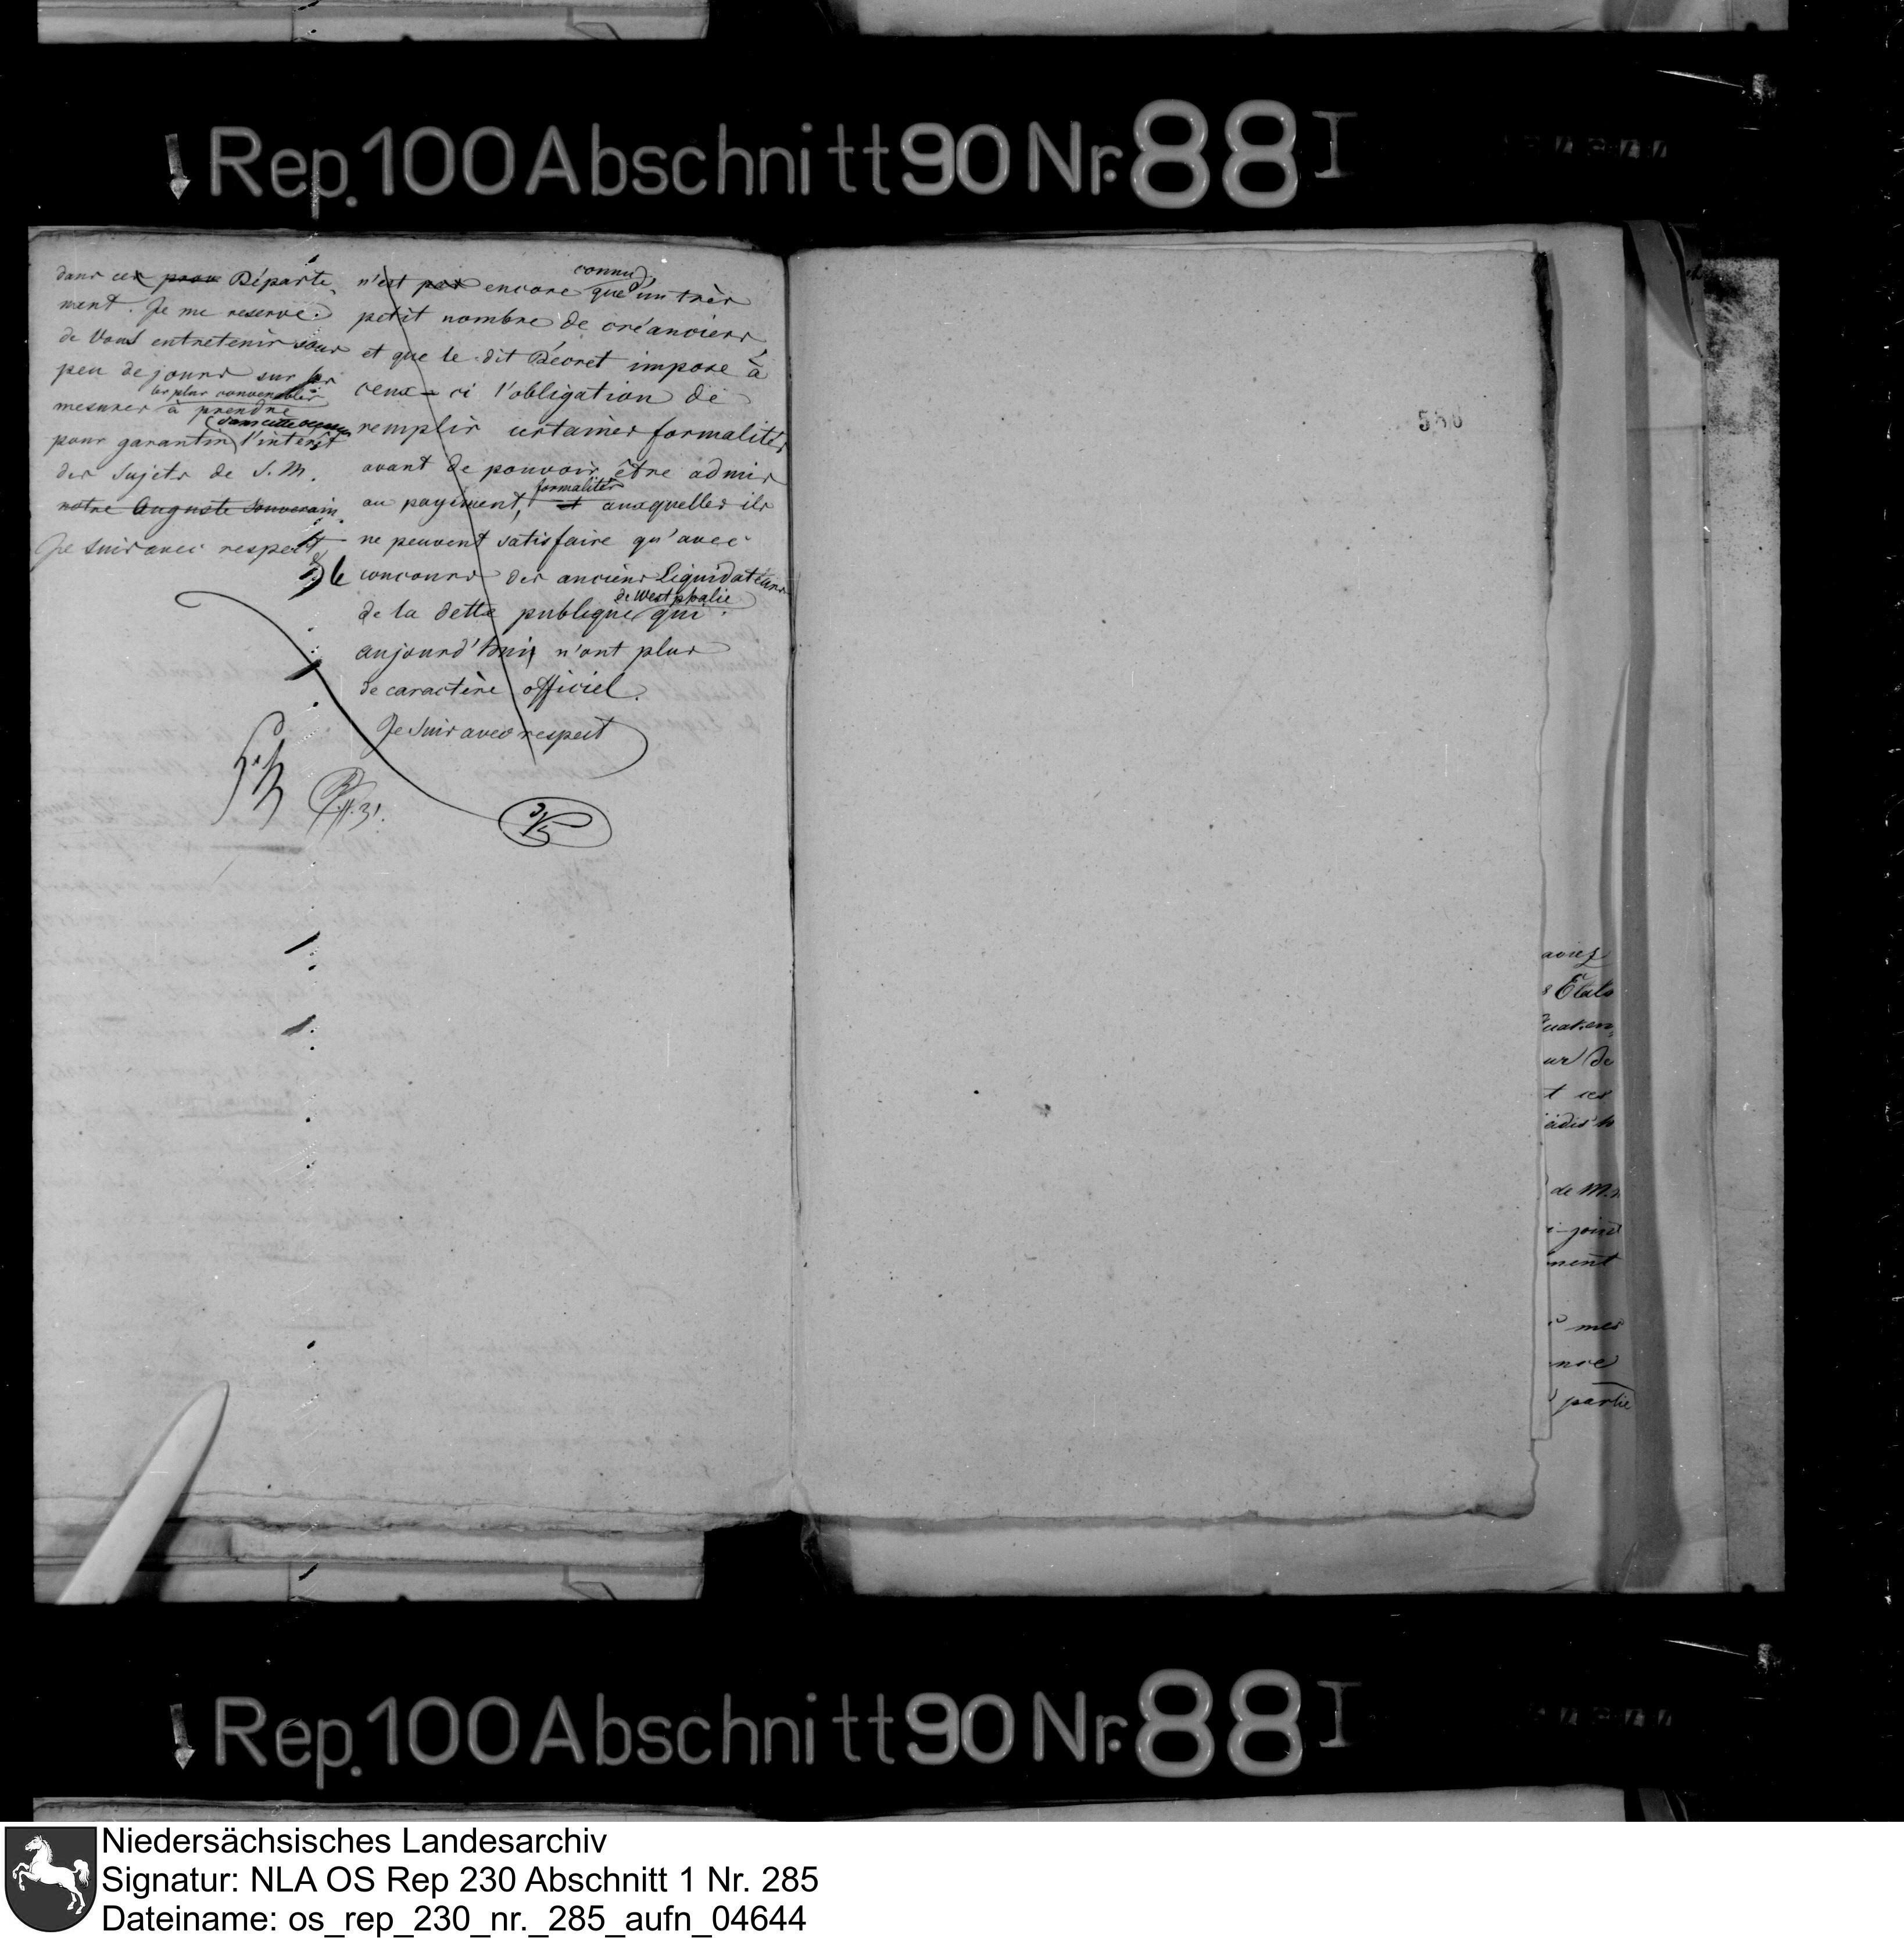 Rep. 100 Abschnitt 90 Nr. 88 I
dans ces Départe,
ment. Je me reserve
de Vous entretenir sous
peu de jours sur les
les plus convenables
mesures à prendre
dans cette
pour garantir l'intérêt
des Sujets de S. M.
notre Auguste Souverain.
Je suis avec respect
connu
n'est pas encore que d'un très
petit nombre de créanciers,
et que le dit Décret impose à
ceux-ci l'obligation de
remplir certaines formalités
avant de pouvoir être admis
formalités
au payement, et auxquelles ils
ne peuvent satisfaire qu'avec
le concours des anciens Liquidateurs
de Westphalie
de la dette publique qui
aujourd'hui n'ont plus
de caractère officiel.
Je suis avec respect
580
avez
s Etats
ur de
t ces
de M.
i-joint
ment
mes
nce
partie
Rep. 100 Abschnitt 90 Nr. 88 I
Niedersächsisches Landesarchiv
Signatur: NLA OS Rep 230 Abschnitt 1 Nr. 285
Dateiname: os_rep_230_nr._285_aufn_04644